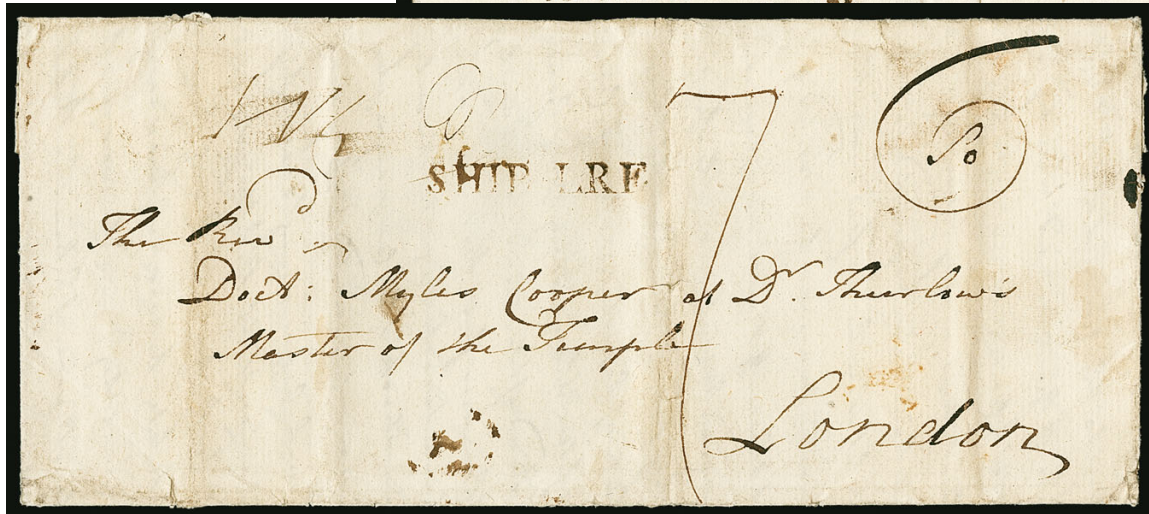 SHIP LRE
7
Po
The Revd
Doctr: Myles Cooper at Dr. Thurlow's
Master of the Temple
London